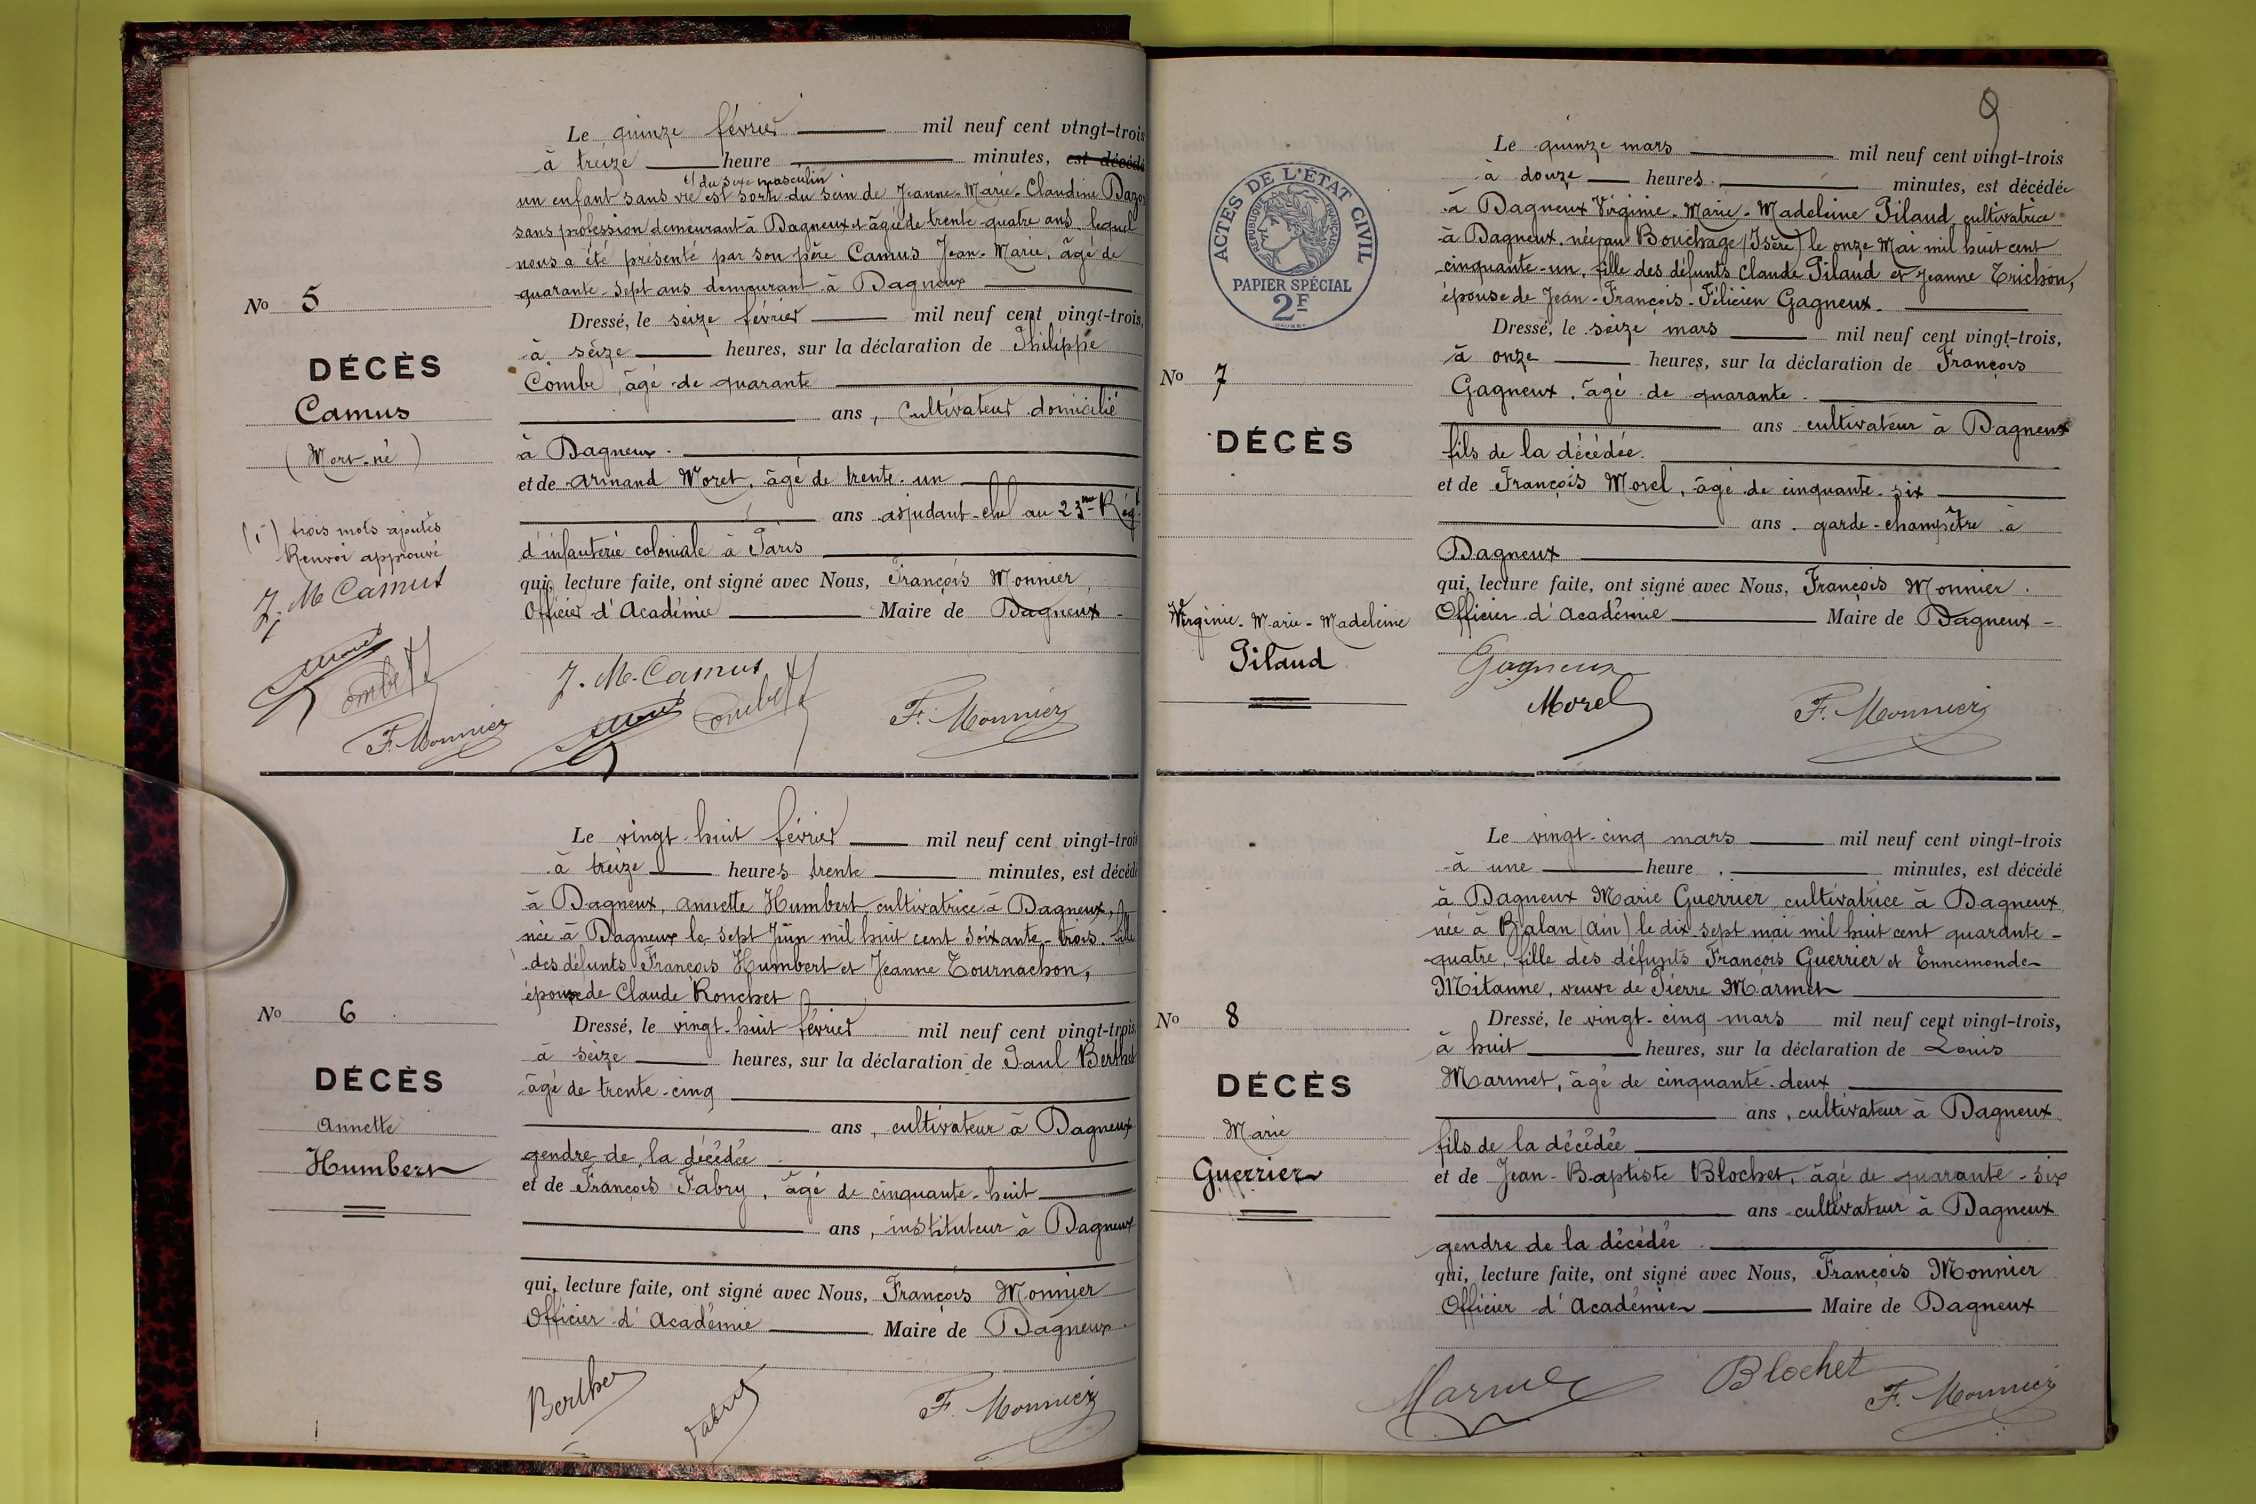 Le quinze février mil neuf cent vingt-trois
à treize heure minutes, est décédé
(1) du sexe masculin
un enfant sans vie est sorti du sein de Jeanne-Marie-Claudine Bazo
sans profession demeurant à Dagneux et âgée de trente-quatre ans lequel
nous a été présenté par son père Camus Jean-Marie, âgé de
quarante-sept ans demeurant à Dagneux
Dressé, le seize février mil neuf cent vingt-trois,
à seize heures, sur la déclaration de Philippe
Combe, âgé de quarante
ans, cultivateur domicilié
à Dagneux.
et de Armand Moret, âgé de trente-un
ans adjudant-chef au 23me Régt
d'infanterie coloniale à Paris
qui, lecture faite, ont signé avec Nous, François Monnier
Officier d'Académie Maire de Dagneux
J. M. Camus
Combe
F. Monnier
No 5
DÉCÈS
Camus
(Mort-né)
(1) trois mots ajoutés
Renvoi approuvé
J. M. Camus
Combe
F. Monnier
Le vingt-huit février mil neuf cent vingt-trois
à treize heures trente minutes, est décédé
à Dagneux, Annette Humbert cultivatrice à Dagneux,
née à Dagneux le sept Juin mil huit cent soixante-trois. fille
des défunts François Humbert et Jeanne Tournachon,
épouse de Claude Ronchet
Dressé, le vingt-huit février mil neuf cent vingt-trois
à seize heures, sur la déclaration de Paul Berthet
âgé de trente-cinq
ans, cultivateur à Dagneux
gendre de la décédée
et de François Fabry, âgé de cinquante-huit
ans, instituteur à Dagneux
qui, lecture faite, ont signé avec Nous, François Monnier
Officier d'Académie Maire de Dagneux
Berthet
Fabry
F. Monnier
No 6
DÉCÈS
Annette
Humbert
9
ACTES DE L'ÉTAT CIVIL
RÉPUBLIQUE FRANÇAISE
PAPIER SPÉCIAL
2F
Le quinze mars mil neuf cent vingt-trois
à douze heures minutes, est décédée
à Dagneux Virginie-Marie-Madeleine Pilaud cultivatrice
à Dagneux. née au Bouchage (Isère) le onze Mai mil huit cent
cinquante-un, fille des défunts Claude Pilaud et Jeanne Trichon,
épouse de Jean-François-Félicien Gagneux.
Dressé, le seize mars mil neuf cent vingt-trois,
à onze heures, sur la déclaration de François
Gagneux, âgé de quarante
ans cultivateur à Dagneux
fils de la décédée.
et de François Morel, âgé de cinquante-six
ans. garde-champêtre à
Dagneux
qui, lecture faite, ont signé avec Nous, François Monnier.
Officier d'Académie Maire de Dagneux
Gagneux
Morel
F. Monnier
No 7
DÉCÈS
Virginie-Marie-Madeleine
Pilaud
Le vingt-cinq mars mil neuf cent vingt-trois
à une heure minutes, est décédé
à Dagneux Marie Guerrier cultivatrice à Dagneux
née à Balan (Ain) le dix-sept mai mil huit cent quarante-
quatre, fille des défunts François Guerrier et Ennemonde
Mitanne, veuve de Pierre Marmet
Dressé, le vingt-cinq mars mil neuf cent vingt-trois,
à huit heures, sur la déclaration de Louis
Marmet, âgé de cinquante-deux
ans, cultivateur à Dagneux
fils de la décédée
et de Jean-Baptiste Blochet, âgé de quarante-six
ans cultivateur à Dagneux
gendre de la décédée
qui, lecture faite, ont signé avec Nous, François Monnier
Officier d'Académie Maire de Dagneux
Marmet
Blochet
F. Monnier
No 8
DÉCÈS
Marie
Guerrier